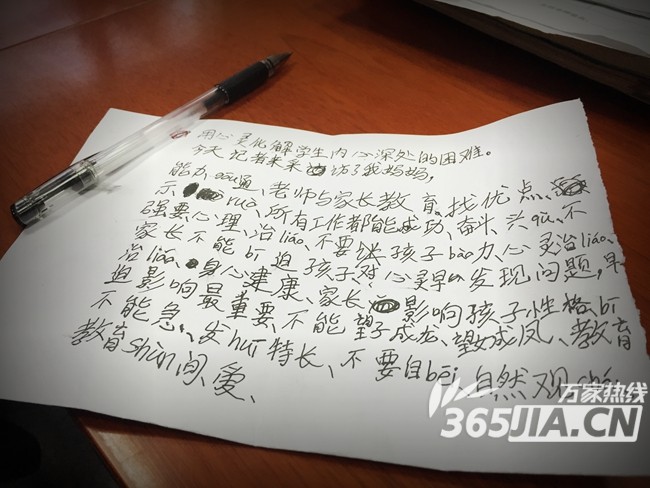 用心灵化解学生内心深处的困难。
今天记者来采访了我妈妈,
能力、沟通、老师与家长教育、找优点、
示ruò、所有工作都能成功、奋斗、兴qù、不
强要心理、治liáo、不要让孩子bào力、心灵治liáo、
家长不能bī迫孩子、对心灵早的发现问题,早
治liáo、身心健康、家长影响孩子性格、bī
迫影响最重要、不能望子成龙、望女成凤、教育
不能急、发huī特长、不要自bēi、自然观chá、
教育shùn间、爱、
万家热线
365JIA.CN